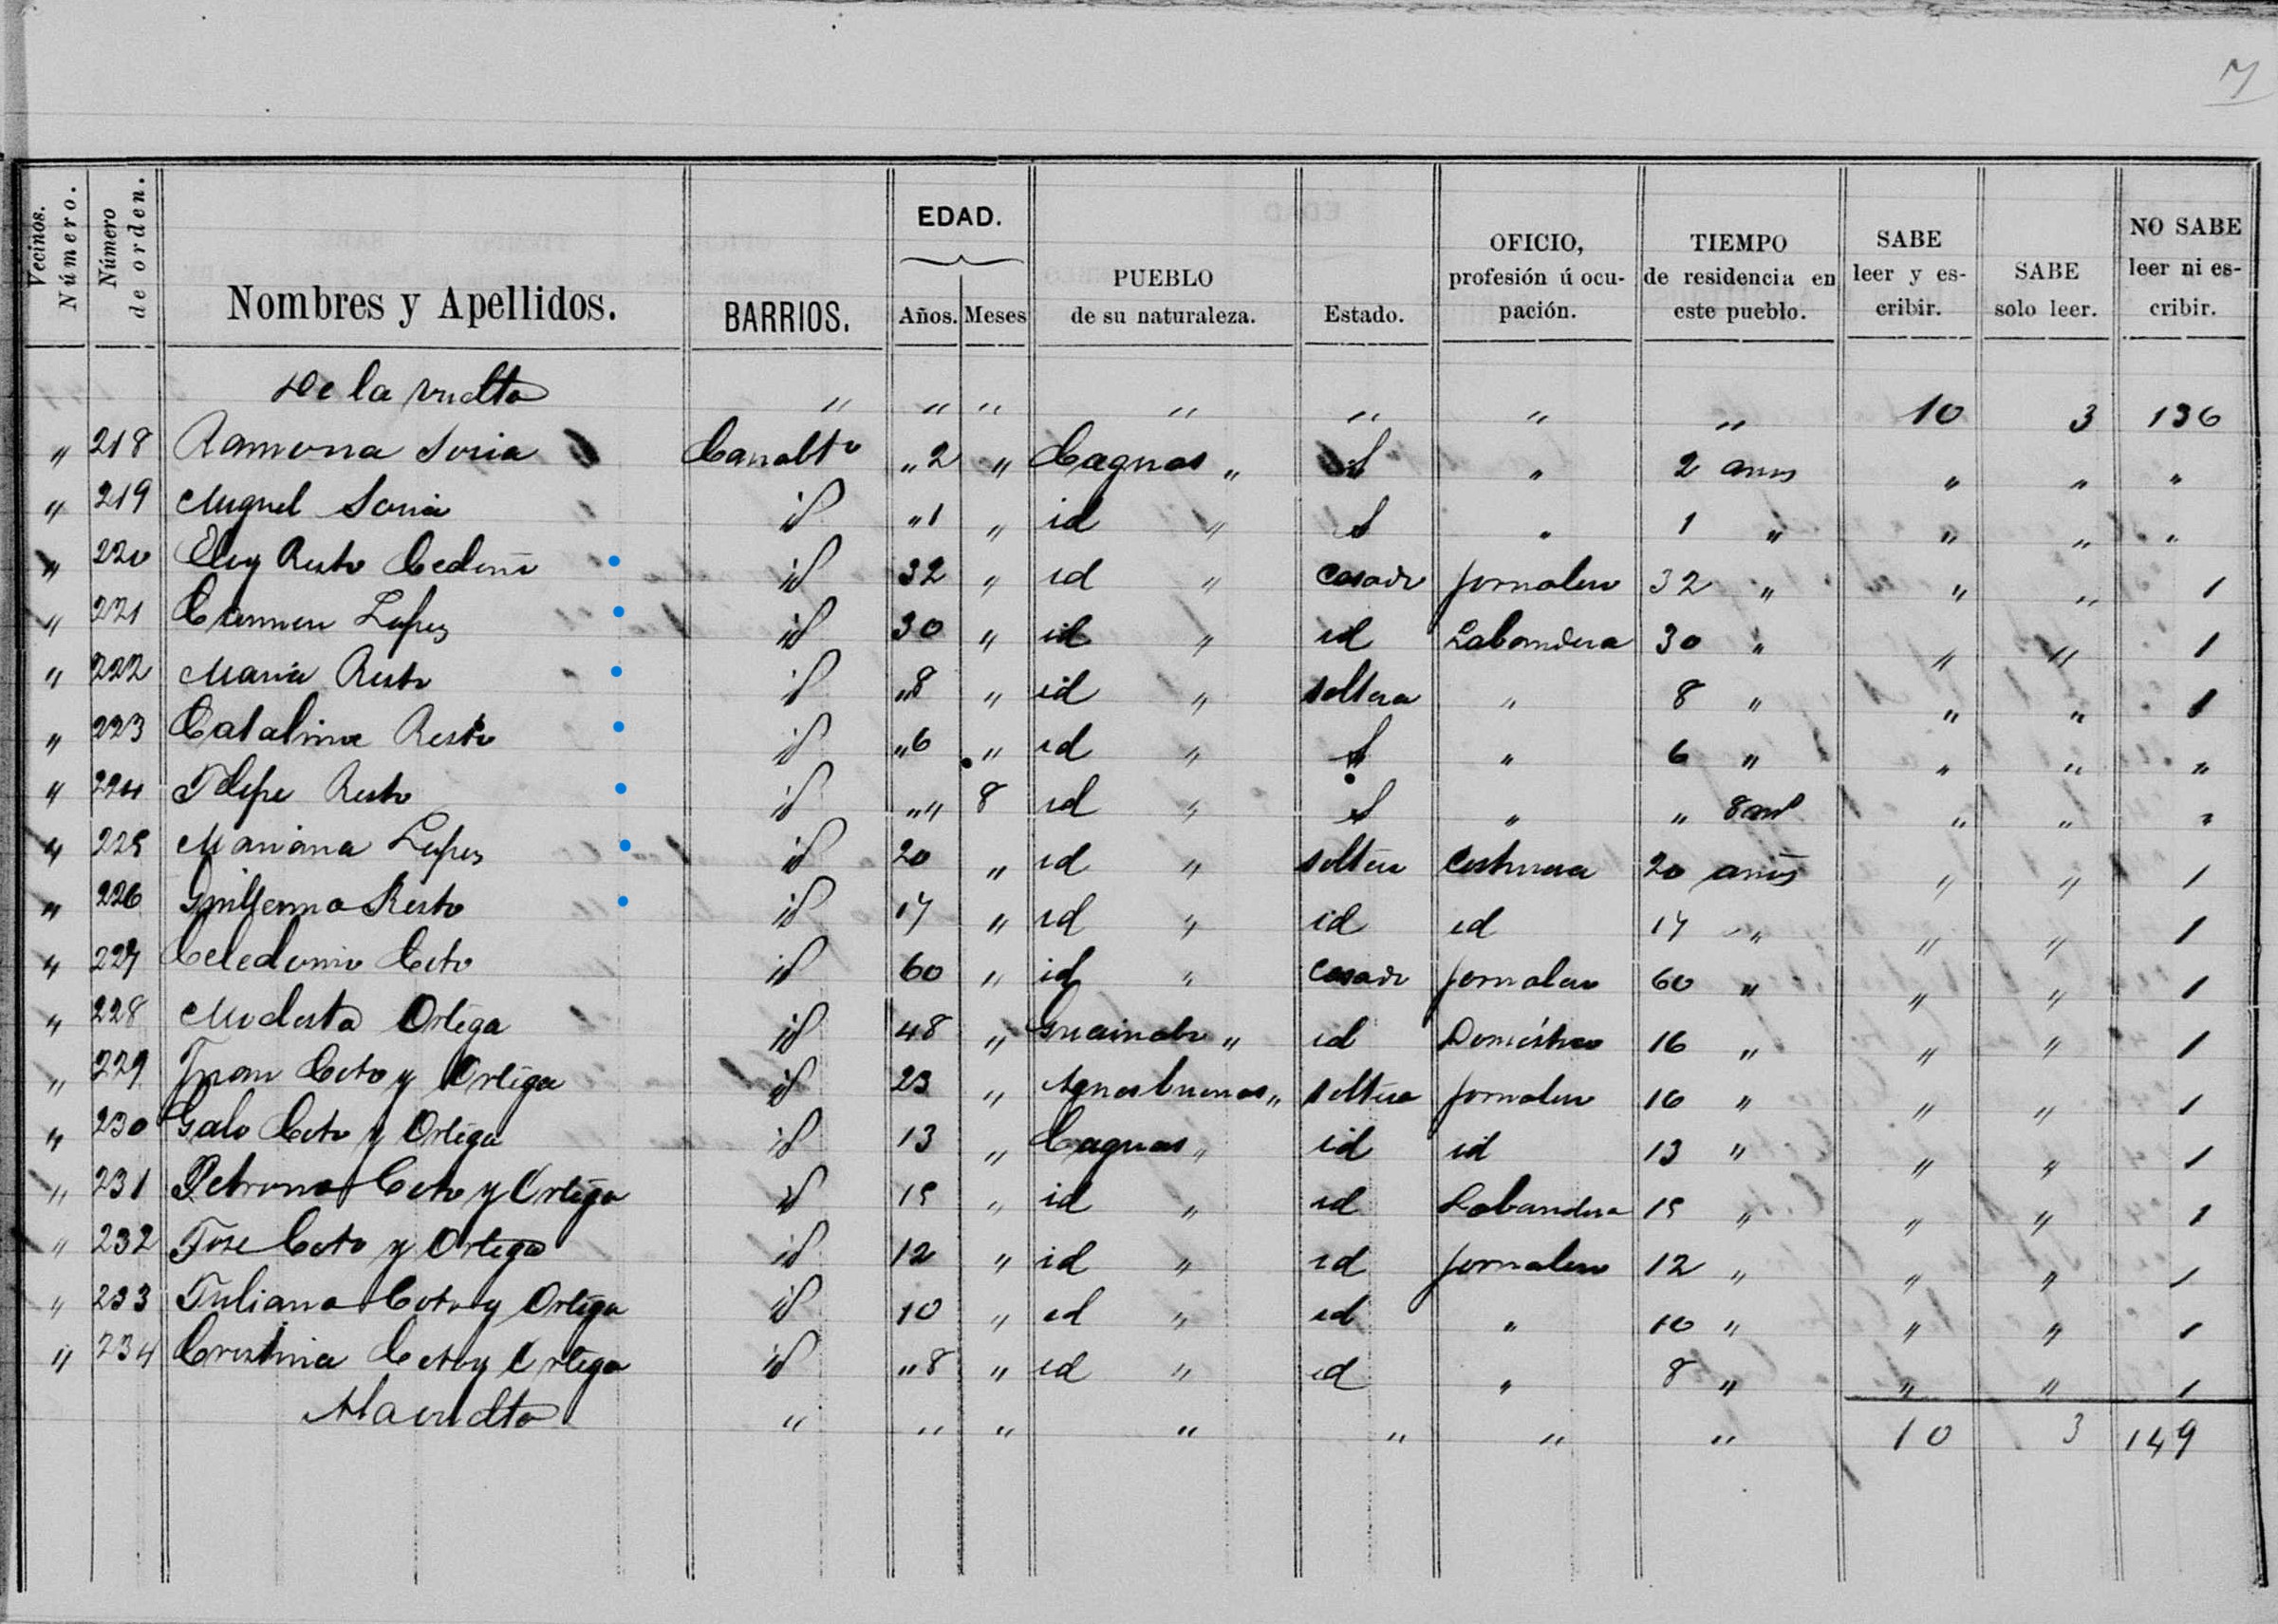 7
Vecinos. Número. Número de orden. Nombres y Apellidos. BARRIOS. EDAD. Años. Meses PUEBLO de su naturaleza. Estado. OFICIO, profesión ú ocupación. TIEMPO de residencia en este pueblo. SABE leer y escribir. SABE solo leer. NO SABE leer ni escribir.
De la vuelta " " " " " " " 10 3 136
" 218 Ramona Soria Canabto " 2 " Caguas " S " 2 años " " "
" 219 Miguel Soria id " 1 " id " S " 1 " " " "
" 220 Eloy Resto Cedeño id 32 " id " casado jornalero 32 " " " 1
" 221 Carmen Lopez id 30 " id " id Labandera 30 " " " 1
" 222 Maria Resto id " 8 " id " soltera " 8 " " " 1
" 223 Catalina Resto id " 6 " id " S " 6 " " " "
" 224 Resto id " " 8 id " S " " 8 " " "
" 225 Mariana Lopez id 20 " id " soltera costurera 20 años " " 1
" 226 Guillerma Resto id 17 " id " id id 17 " " " 1
" 227 Celedonio Coto id 60 " id " casado jornalero 60 " " " 1
" 228 Modesta Ortega id 48 " Guainabo " id Doméstica 16 " " " 1
" 229 Juan Coto y Ortega id 23 " Aguas buenas " soltero jornalero 16 " " " 1
" 230 Galo Coto y Ortega id 13 " Caguas " id id 13 " " " 1
" 231 Petrona Coto y Ortega id 15 " id " id Labandera 15 " " " 1
" 232 Jose Coto y Ortega id 12 " id " id jornalero 12 " " " 1
" 233 Juliana Coto y Ortega id 10 " id " id " 10 " " " 1
" 234 Cristina Coto y Ortega id " 8 " id " id " 8 " " " 1
A la vuelta " " " " " " " 10 3 149